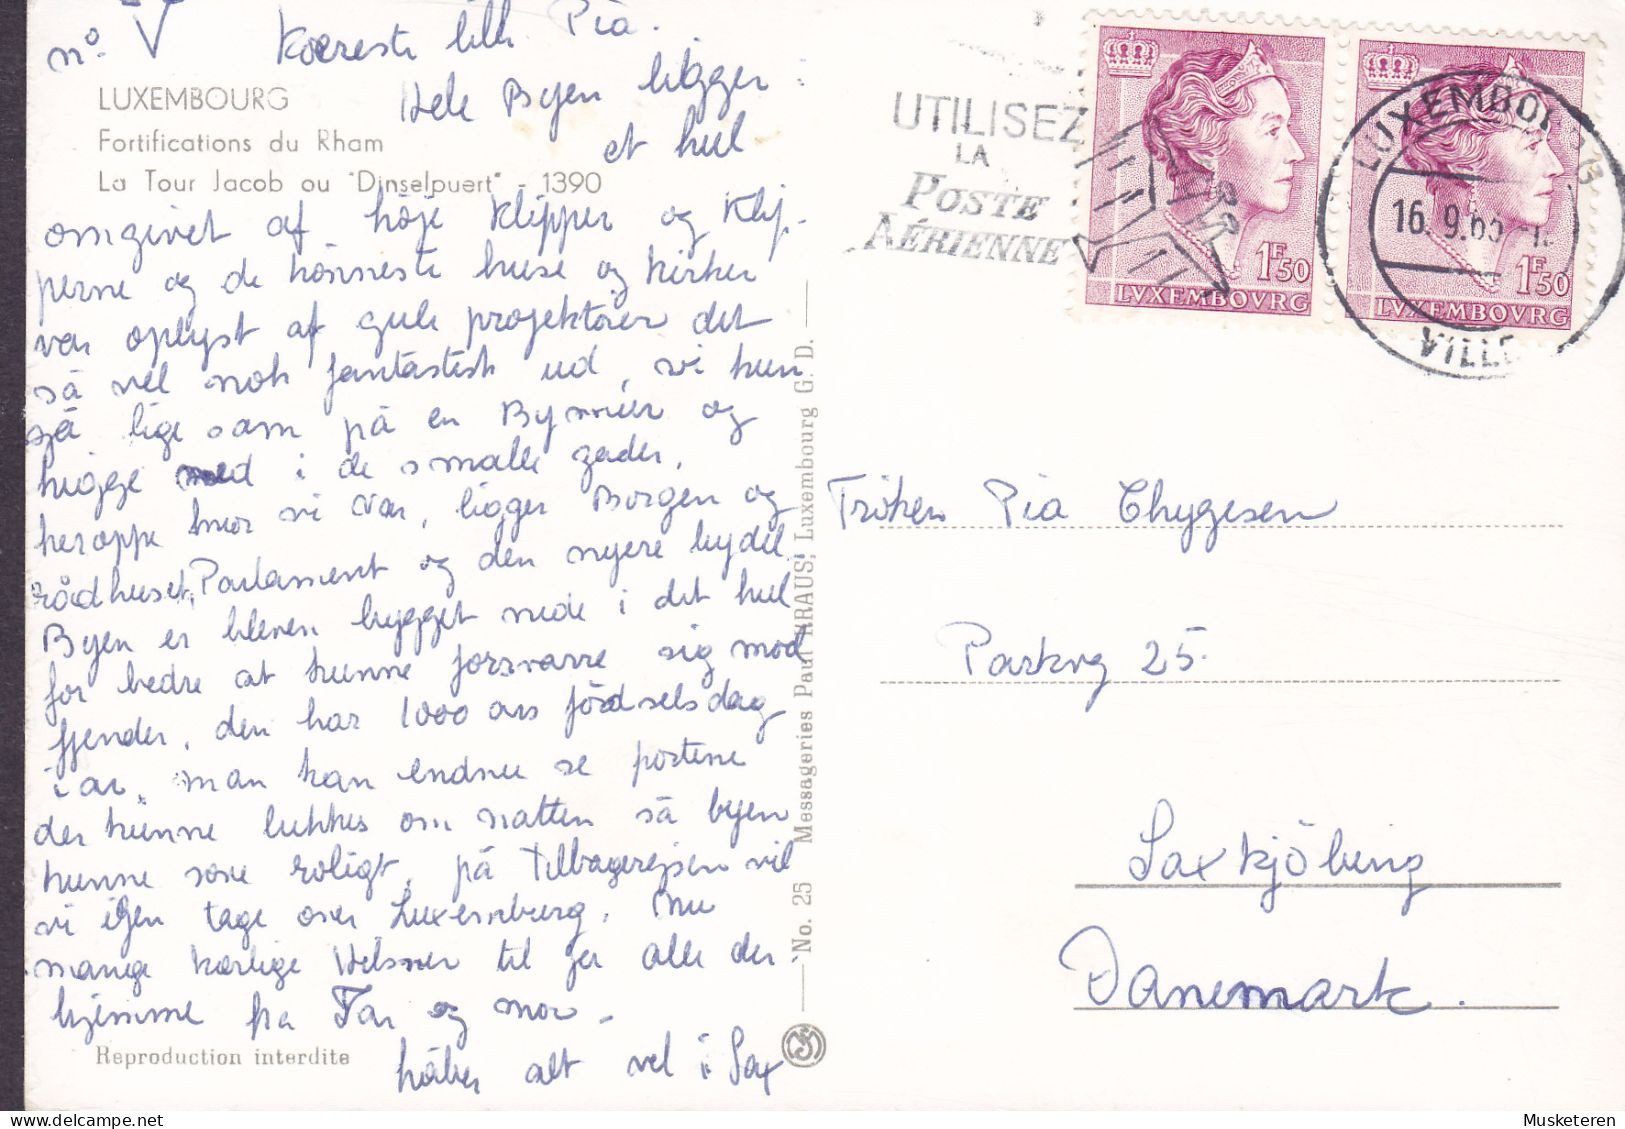 no. V Kæreste lille Pia.
LUXEMBOURG
Fortifications du Rham
La Tour Jacob ou "Dinselpuert" - 1390
Hele Byen ligger
et hul
omgivet af höje Klipper og Klip-
perne og de könneste huse og Kirker
var oplyst af gule projektörer det
så vel nok fantastisk ud, vi kun
så lige som på en Bymur og
kigge ned i de smalle gader,
heroppe hvor vi var, ligger Borgen og
rådhuset, Parlament og den nyere bydel
Byen er bleven bygget nede i det hul
for bedre at kunne forsvarre sig mod
fjender, den har 1000 års födselsdag
i år, man kan endnu se portene
der kunne lukkes om natten så byen
kunne sove roligt, på Tilbagerejsen vil
vi igen tage over Luxemburg. Nu
mange kærlige Hilsner til jer alle der-
hjemme fra Far og mor.
håber alt vel i Sax
Reproduction interdite
No. 25 Messageries Paul KRAUS, Luxembourg G. D.
UTILISEZ
LA
POSTE
AÉRIENNE
1F50
LVXEMBOVRG
1F50
LVXEMBOVRG
LUXEMBOURG
16. 9.
VILLE
Fröken Pia Thygesen
Parkvg 25.
Saxkjöbing
Danemark.
Musketeren